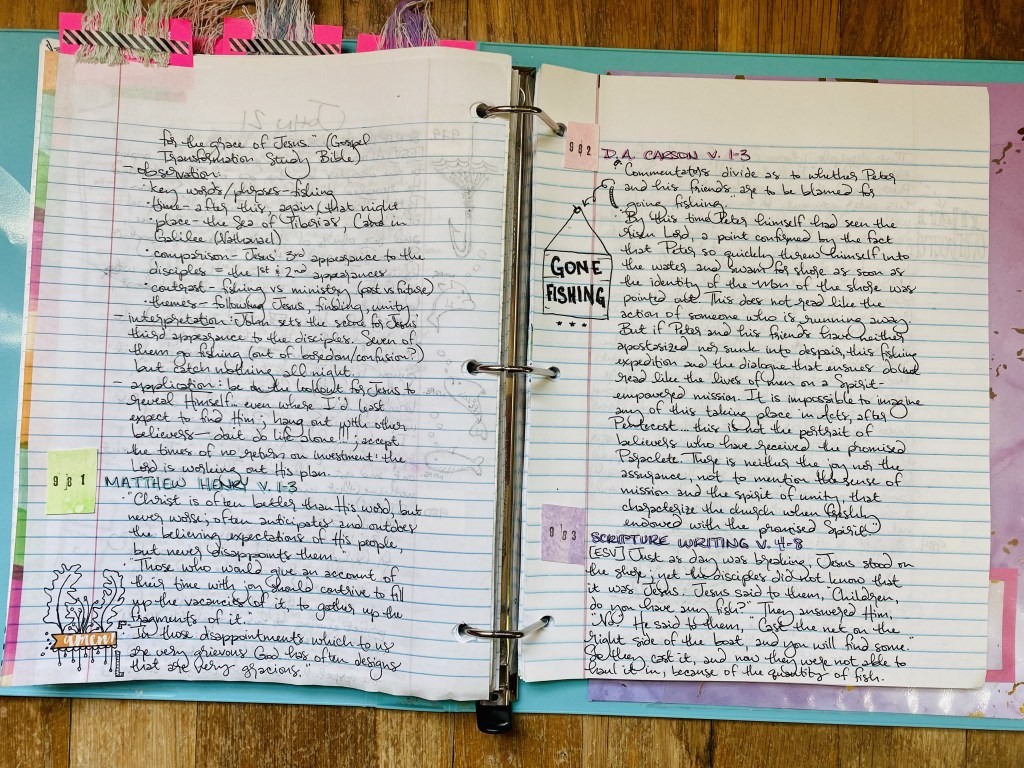 for the grace of Jesus" (Gospel
Transformation Study Bible)
- observation:
· key words/phrases - fishing
· time - after this, again, that night
· place - the Sea of Tiberias, Cana in
Galilee (Nathanael)
· comparison - Jesus' 3rd appearance to the
disciples = the 1st & 2nd appearances
· contrast - fishing vs ministry (past vs future)
· themes - following Jesus, finding, unity
- interpretation: John sets the scene for Jesus'
third appearance to the disciples. Seven of
them go fishing (out of boredom/confusion?)
but catch nothing all night.
- application: be on the lookout for Jesus to
reveal Himself... even where I'd least
expect to find Him; hang out with other
believers - don't do life alone!!!; accept
the times of no return on investment: the
Lord is working out His plan.
981
MATTHEW HENRY V. 1-3
· "Christ is often better than His word, but
never worse; often anticipates and outdoes
the believing expectations of His people,
but never disappoints them."
· "Those who would give an account of
their time with joy should contrive to fill
up the vacancies of it, to gather up the
fragments of it."
· "In those disappointments which to us
are very grievous God has often designs
that are very gracious.
amen
982
D. A. CARSON V. 1-3
· "Commentators divide as to whether Peter
and his friends are to be blamed for
going fishing."
· "By this time Peter himself had seen the
risen Lord, a point confirmed by the fact
that Peter so quickly threw himself into
the water and swam for shore as soon as
the identity of the man of the shore was
pointed out. This does not read like the
action of someone who is running away.
But if Peter and his friends have neither
apostasized nor sunk into despair, this fishing
expedition and the dialogue that ensues do not
read like the lives of men on a Spirit-
empowered mission. It is impossible to imagine
any of this taking place in Acts, after
Pentecost... this is not the portrait of
believers who have received the promised
Paraclete. There is neither the joy nor the
assurance, not to mention the sense of
mission and the spirit of unity, that
characterize the church when freshly
endowed with the promised Spirit."
GONE
FISHING
983
SCRIPTURE WRITING V. 4-8
[ESV] Just as day was breaking, Jesus stood on
the shore; yet the disciples did not know that
it was Jesus. Jesus said to them, "Children,
do you have any fish?" They answered Him,
"No." He said to them, "Cast the net on the
right side of the boat, and you will find some."
So they cast it, and now they were not able to
haul it in, because of the quantity of fish.